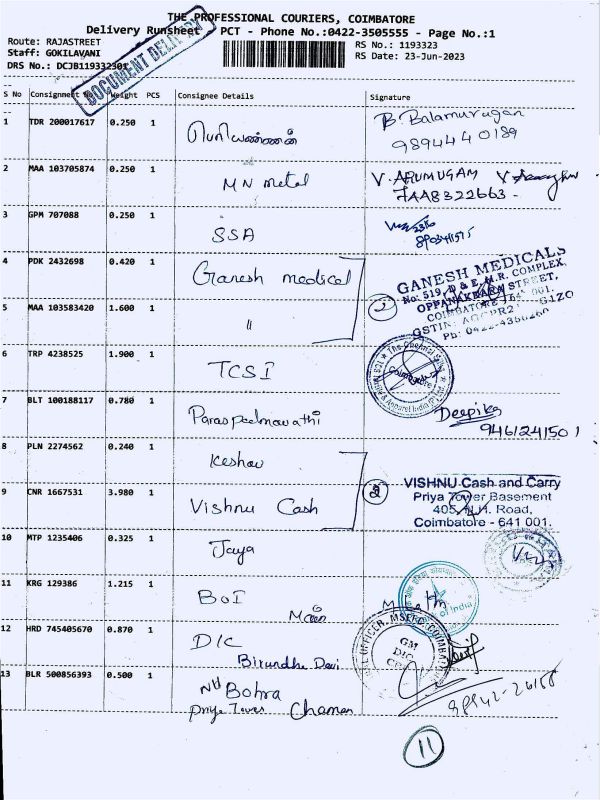 THE PROFESSIONAL COURIERS, COIMBATORE
Delivery Runsheet PCT - Phone No.:0422-3505555 - Page No.:1
Route: RAJASTREET
Staff: GOKILAVANI
DRS No.: DCJB119332301
RS No.: 1193323
RS Date: 23-Jun-2023
DOCUMENT DELIVERY
S No Consignment No Weight PCS Consignee Details Signature
1 TDR 200017617 0.250 1 B. Balamurugan
9894440189
2 MAA 103705874 0.250 1 MN metal V. ARUMUGAM
7448322663
3 GPM 707088 0.250 1 SSA
4 PDK 2432698 0.420 1 Ganesh medical
GANESH MEDICALS
No: 519, D & E, M.R. COMPLEX,
OPPANAKKARA STREET,
COIMBATORE - 641 001.
5 MAA 103583420 1.600 1 "
2
6 TRP 4238525 1.900 1 TCSI
Coimbatore
7 BLT 100188117 0.780 1 Deepika
9461241501
8 PLN 2274562 0.240 1 Keshav
9 CNR 1667531 3.980 1 Vishnu Cash
2
VISHNU Cash and Carry
Priya Tower Basement
405, N.H. Road,
Coimbatore - 641 001.
10 MTP 1235406 0.325 1 Jaya
11 KRG 129386 1.215 1 BOI
of India
12 HRD 745405670 0.870 1 DIC
Birundha Devi
GM
DIC
13 BLR 500856393 0.500 1 Bohra
Priya Tower Chaman
11